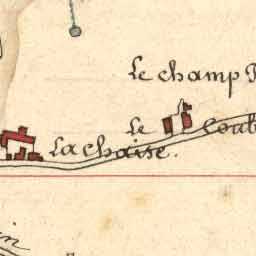 Le champ
Le Coub
La chaise.
in